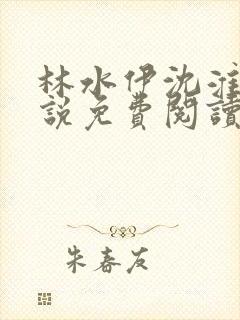 林水伊沈淮
說免費閱讀
朱春友